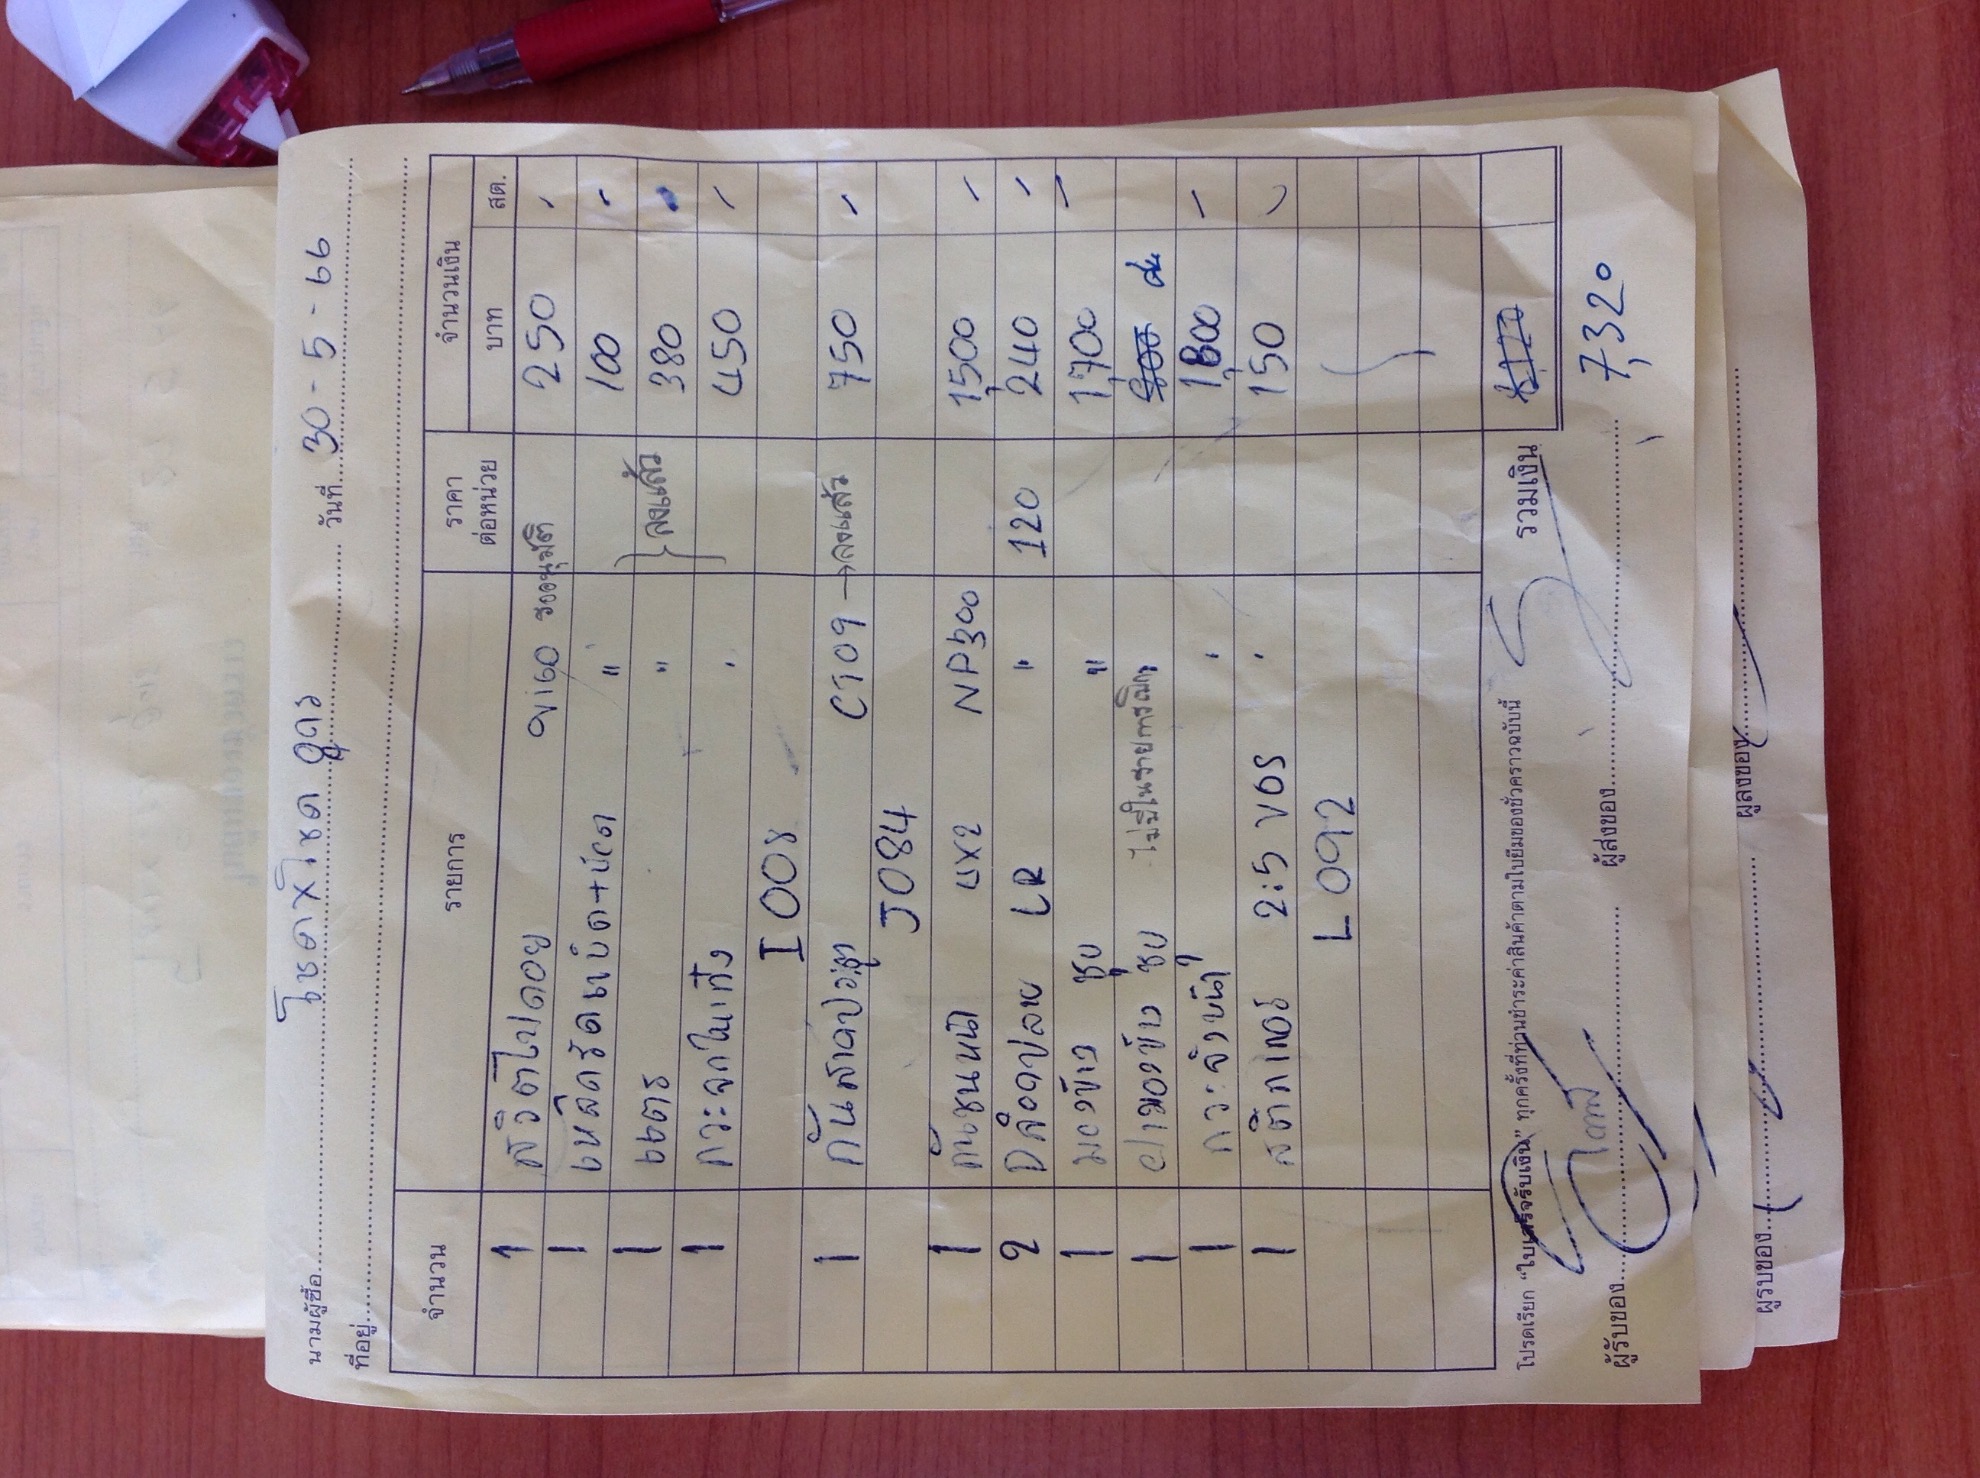 นามผู้ซื้อ โชคมโชค อุดร วันที่ 30 - 5 - 66
ที่อยู่
จำนวน รายการ ราคาต่อหน่วย จำนวนเงิน บาท สต.
1 สวิตไปดอย vigo รออนุมัติ 250 -
1 เหล็กรัดแบ็ต+น๊อต " 100 -
1 แตร " } ลงแล้ว 380 -
1 กระจกในเก๋ง " 450 -
I 008
1 กันสาดประตู CT09 → ลงแล้ว 750 -
J084
1 กันชนหน้า 4x2 NP300 1,500 -
2 ปลีอกปลาย LR " 120 240 -
1 มองข้าง ชุบ " 1,700 -
1 ฝามองข้าง ชุบ ไม่มีในรายการเบิก
1 กระจังหน้า " 1,800 -
1 สติกเกอร์ 2:5 VGS " 150 -
L 092
โปรดเรียก "ใบเสร็จรับเงิน" ทุกครั้งที่ท่านชำระค่าสินค้าตามใบยืมของชั่วคราวฉบับนี้ รวมเงิน
7,320
ผู้รับของ ผู้ส่งของ
ผู้รับของ ผู้ส่งของ